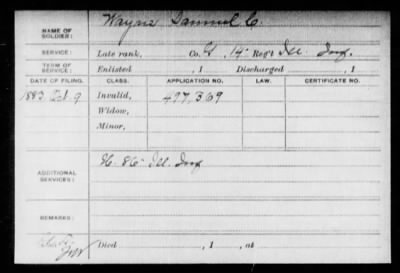 NAME OF SOLDIER: Wayne Samuel C.
SERVICE: Late rank, Co. G, 14 Reg't Ill. Inf.
TERM OF SERVICE: Enlisted , 1 Discharged , 1
DATE OF FILING. CLASS. APPLICATION NO. LAW. CERTIFICATE NO.
1883, Oct. 9 Invalid, 497,369
Widow,
Minor,
ADDITIONAL SERVICES: 86 Ill. Inf
REMARKS:
Died , 1 , at